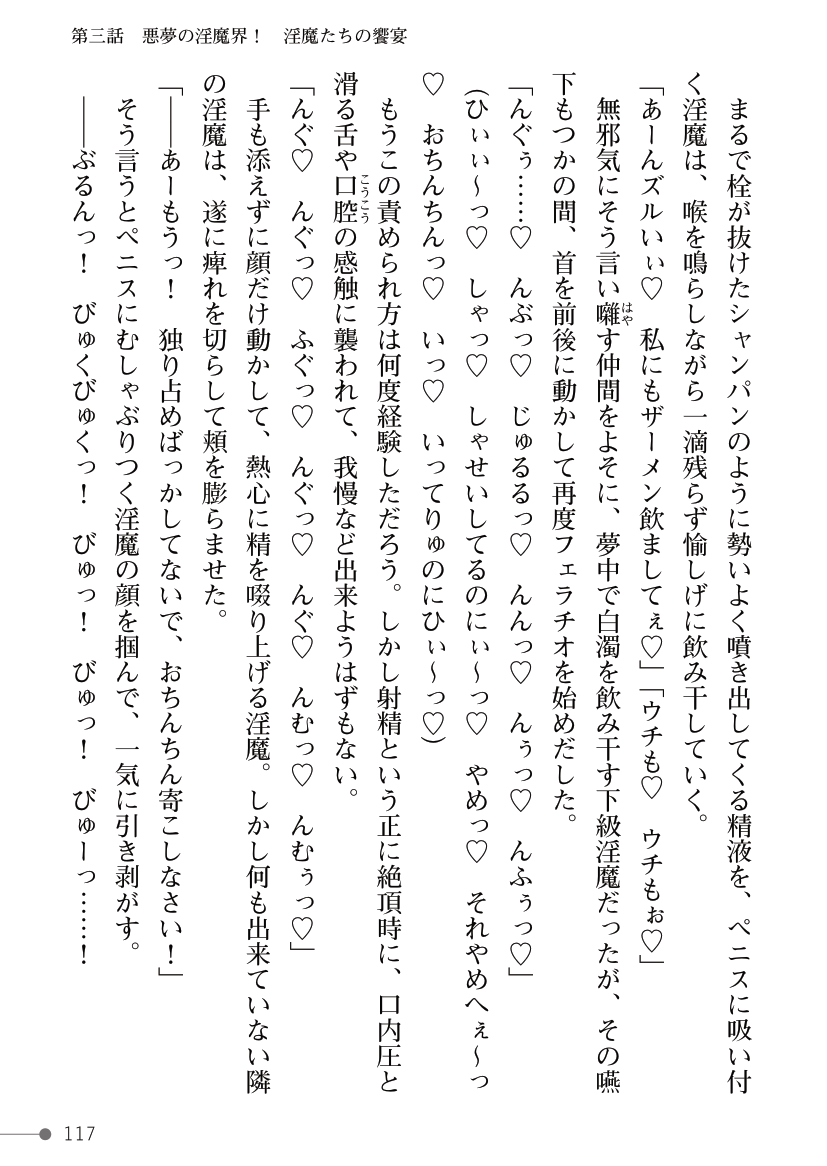 第三話　悪夢の淫魔界！　淫魔たちの饗宴
　まるで栓が抜けたシャンパンのように勢いよく噴き出してくる精液を、ペニスに吸い付
く淫魔は、喉を鳴らしながら一滴残らず愉しげに飲み干していく。
「あーんズルいぃ♡　私にもザーメン飲ましてぇ♡」「ウチも♡　ウチもぉ♡」
　無邪気にそう言い囃す仲間をよそに、夢中で白濁を飲み干す下級淫魔だったが、その嚥
下もつかの間、首を前後に動かして再度フェラチオを始めだした。
「んぐぅ……♡　んぶっ♡　じゅるるっ♡　んんっ♡　んぅっ♡　んふぅっ♡」
（ひぃぃ～っ♡　しゃっ♡　しゃせいしてるのにぃ～っ♡　やめっ♡　それやめへぇ～っ
♡　おちんちんっ♡　いっ♡　いってりゅのにひぃ～っ♡）
　もうこの責められ方は何度経験しただろう。しかし射精という正に絶頂時に、口内圧と
滑る舌や口腔の感触に襲われて、我慢など出来ようはずもない。
「んぐ♡　んぐっ♡　ふぐっ♡　んぐっ♡　んぐ♡　んむっ♡　んむぅっ♡」
　手も添えずに顔だけ動かして、熱心に精を啜り上げる淫魔。しかし何も出来ていない隣
の淫魔は、遂に痺れを切らして頬を膨らませた。
「――あーもうっ！　独り占めばっかしてないで、おちんちん寄こしなさい！」
　そう言うとペニスにむしゃぶりつく淫魔の顔を掴んで、一気に引き剥がす。
　――ぶるんっ！　びゅくびゅくっ！　びゅっ！　びゅっ！　びゅーっ……！
117